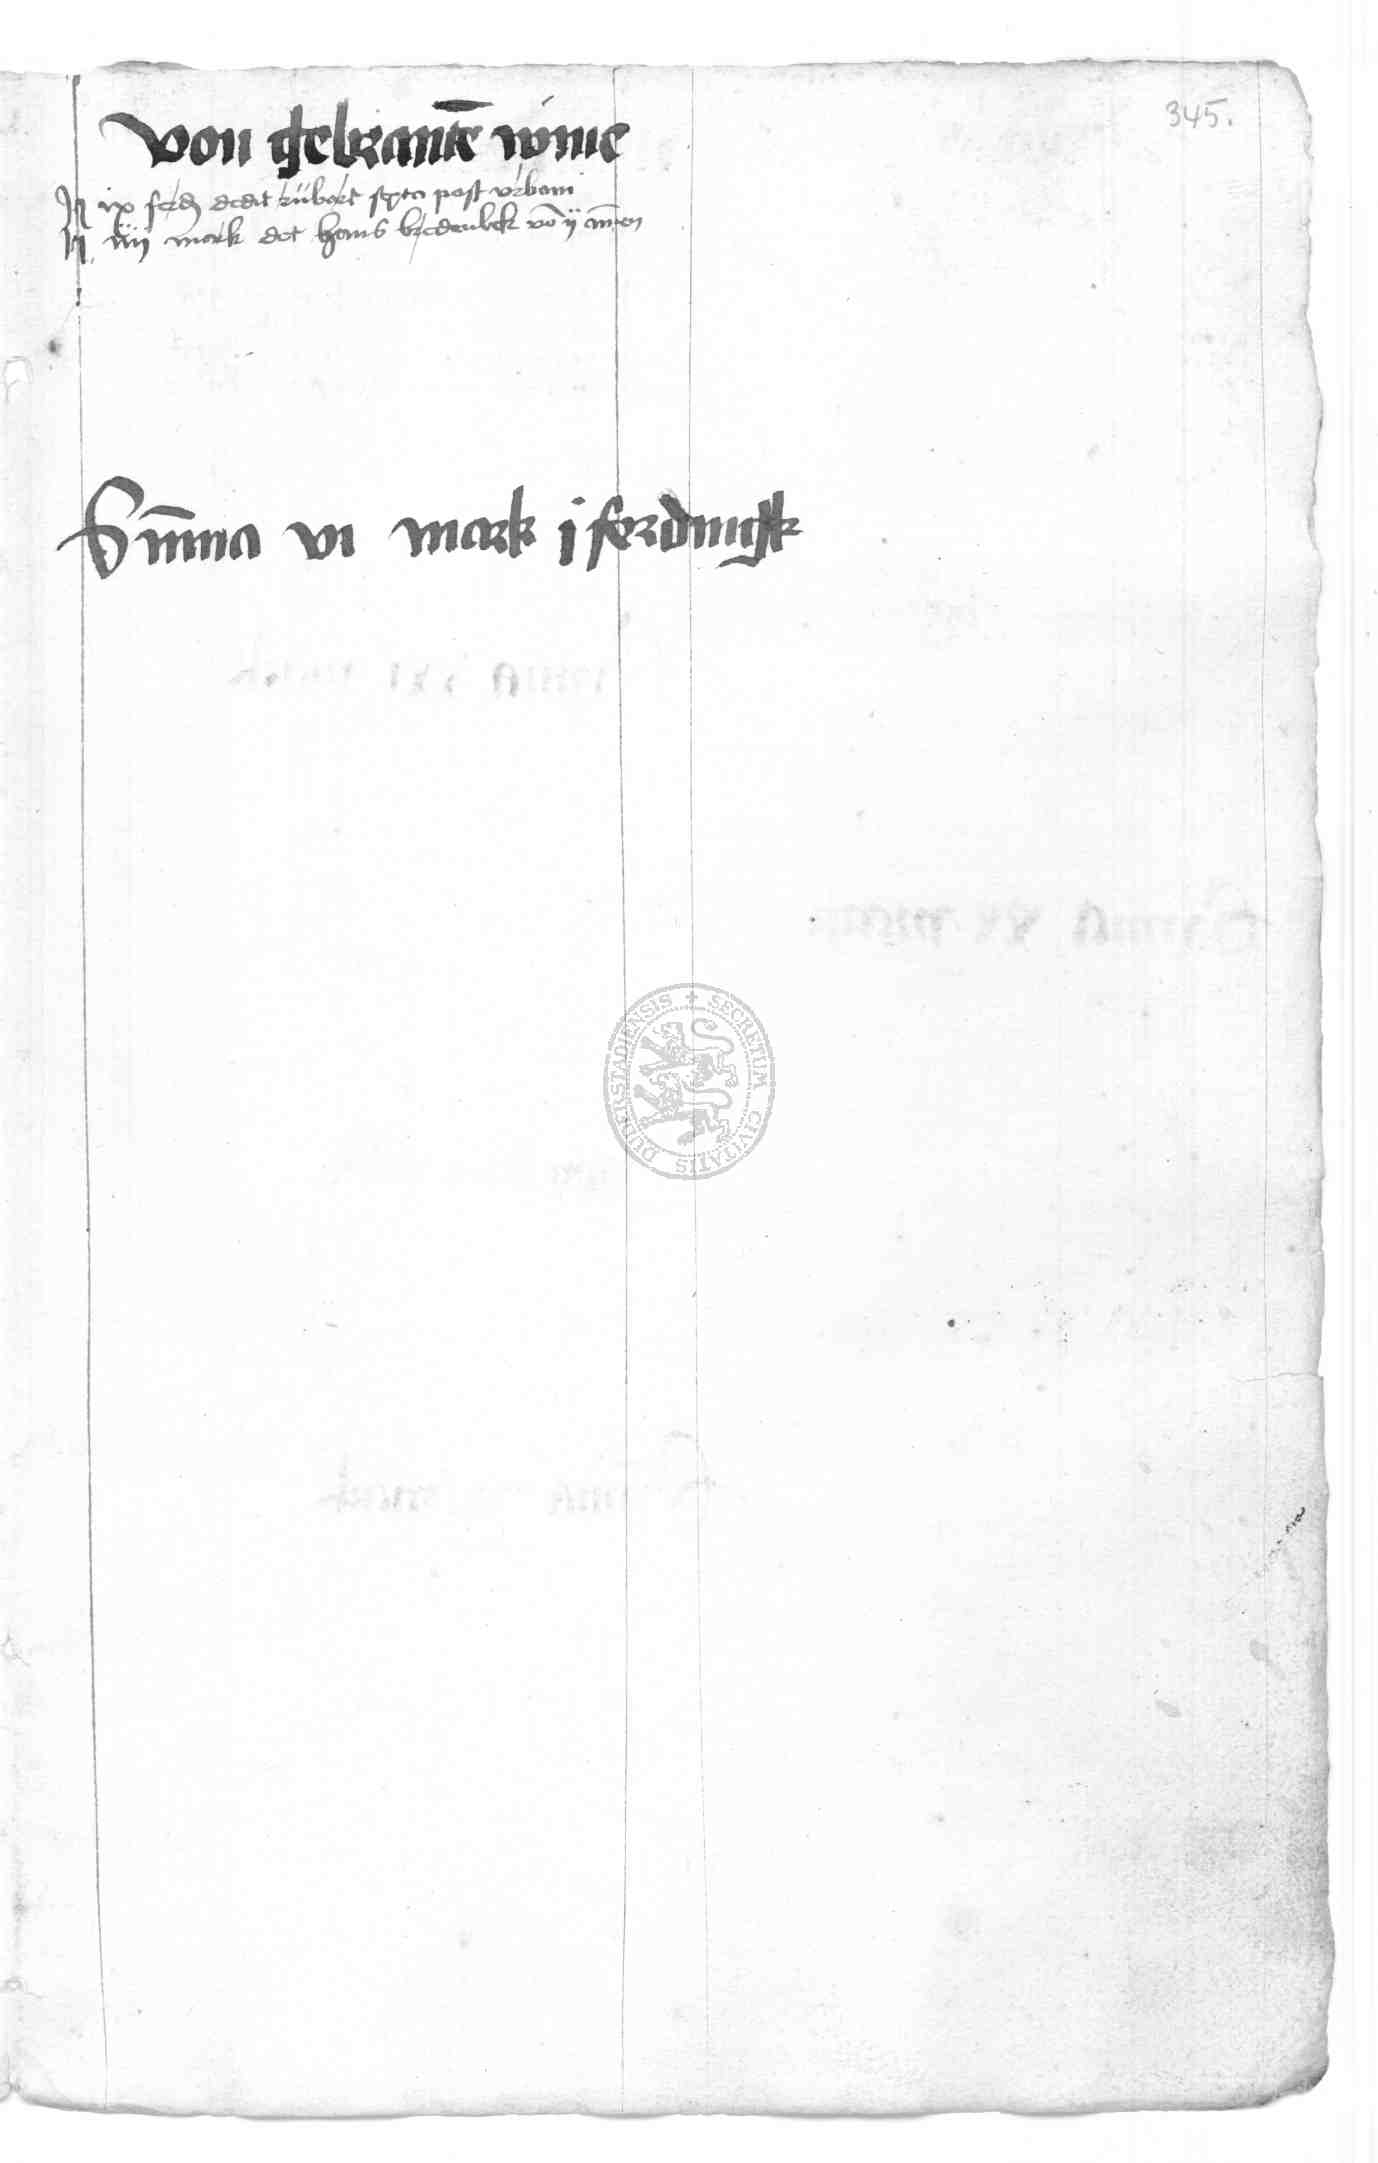 345.
von gebrantē wine
It ix ferd dedit rubart sexta post urbani
It iiij mark det hans bredenbek vō ij amen
Sūma vi mark j ferdingk
SECRETUM CIVITATIS DUDERSTADIENSIS